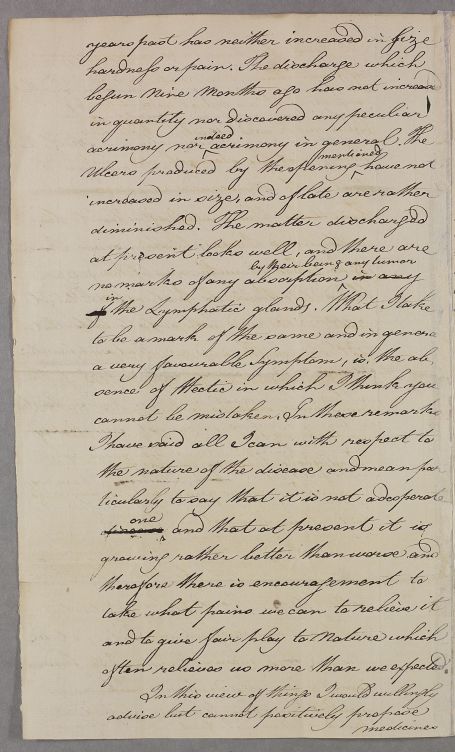 years past has neither increased in Size
hardness or pain. The discharge which
begun Nine Months ago has not increased
in quantity nor discovered any peculiar
indeed
acrimony nor acrimony in general. The
mentioned
Ulcers produced by the opening have not
increased in size, and of late are rather
diminished. The matter discharged
at present looks well, and there are
by their being any tumor
no marks of any absorption in any
in
of the Lymphatic glands. What I take
to be a mark of the same and in general
a very favourable Symptom, is the ab
sence of Hectic in which I think you
cannot be mistaken. In these remarks
I have said all I can with respect to
the nature of the disease and mean par
ticularly to say that it is not a desperate
one
and that at present it is
growing rather better than worse and
therefore there is encouragement to
take what pains we can to relieve it
and to give fair play to Nature which
often relieves us more than we expected.
In this view of things I would willingly
advise but cannot positively propose
medicines